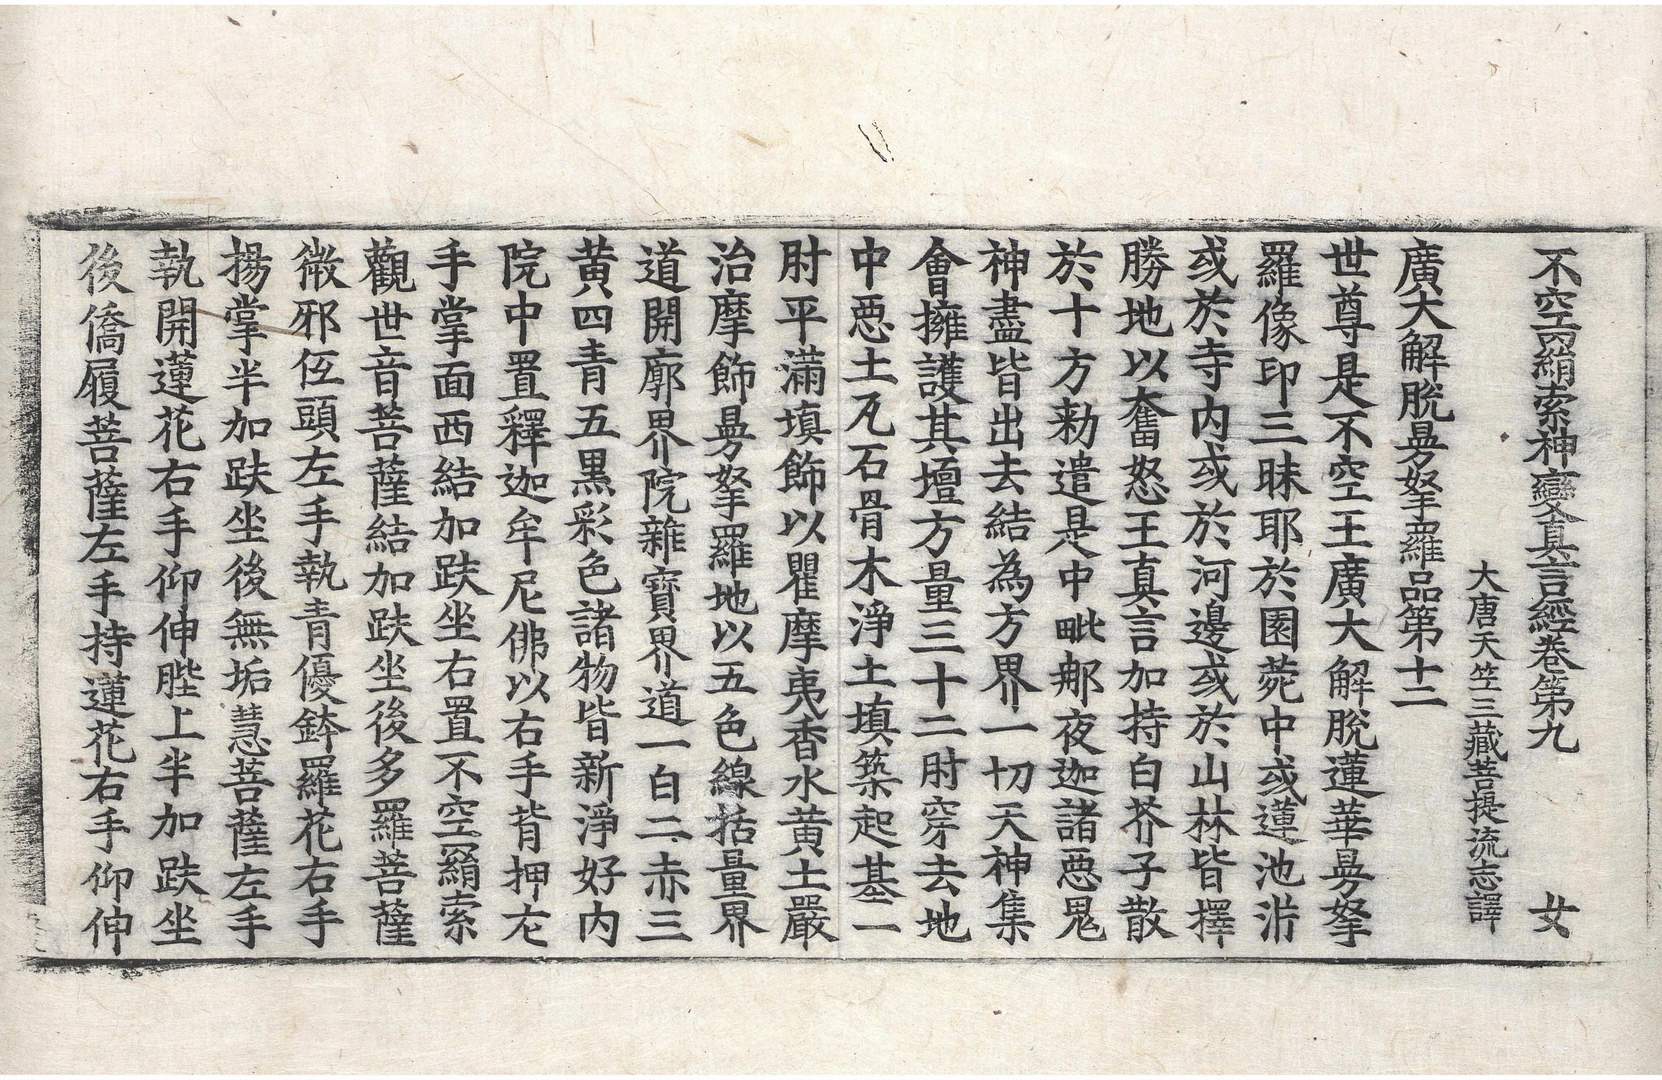 不空罥索神變真言經卷第九 女
大唐天竺三藏菩提流志譯
廣大解脫曼拏羅品第十二
世尊是不空王廣大解脫蓮華曼拏
羅像印三昧耶於園菀中或蓮池㳂
或於寺內或於河邊或於山林皆擇
勝地以奮怒王真言加持白芥子散
於十方勑遣是中毗那夜迦諸惡鬼
神盡皆出去結為方界一切天神集
會擁護其壇方量三十二肘穿去地
中惡土瓦石骨木淨土填築起基一
肘平滿填飾以瞿摩夷香水黃土嚴
治摩飾曼拏羅地以五色線括量界
道開廓界院雜寶界道一白二赤三
黃四青五黑彩色諸物皆新淨好內
院中置釋迦牟尼佛以右手背押左
手掌面西結加趺坐右置不空罥索
觀世音菩薩結加趺坐後多羅菩薩
微邪低頭左手執青優鉢羅花右手
揚掌半加趺坐後無垢慧菩薩左手
執開蓮花右手仰伸䏶上半加趺坐
後僑履菩薩左手持蓮花右手仰伸